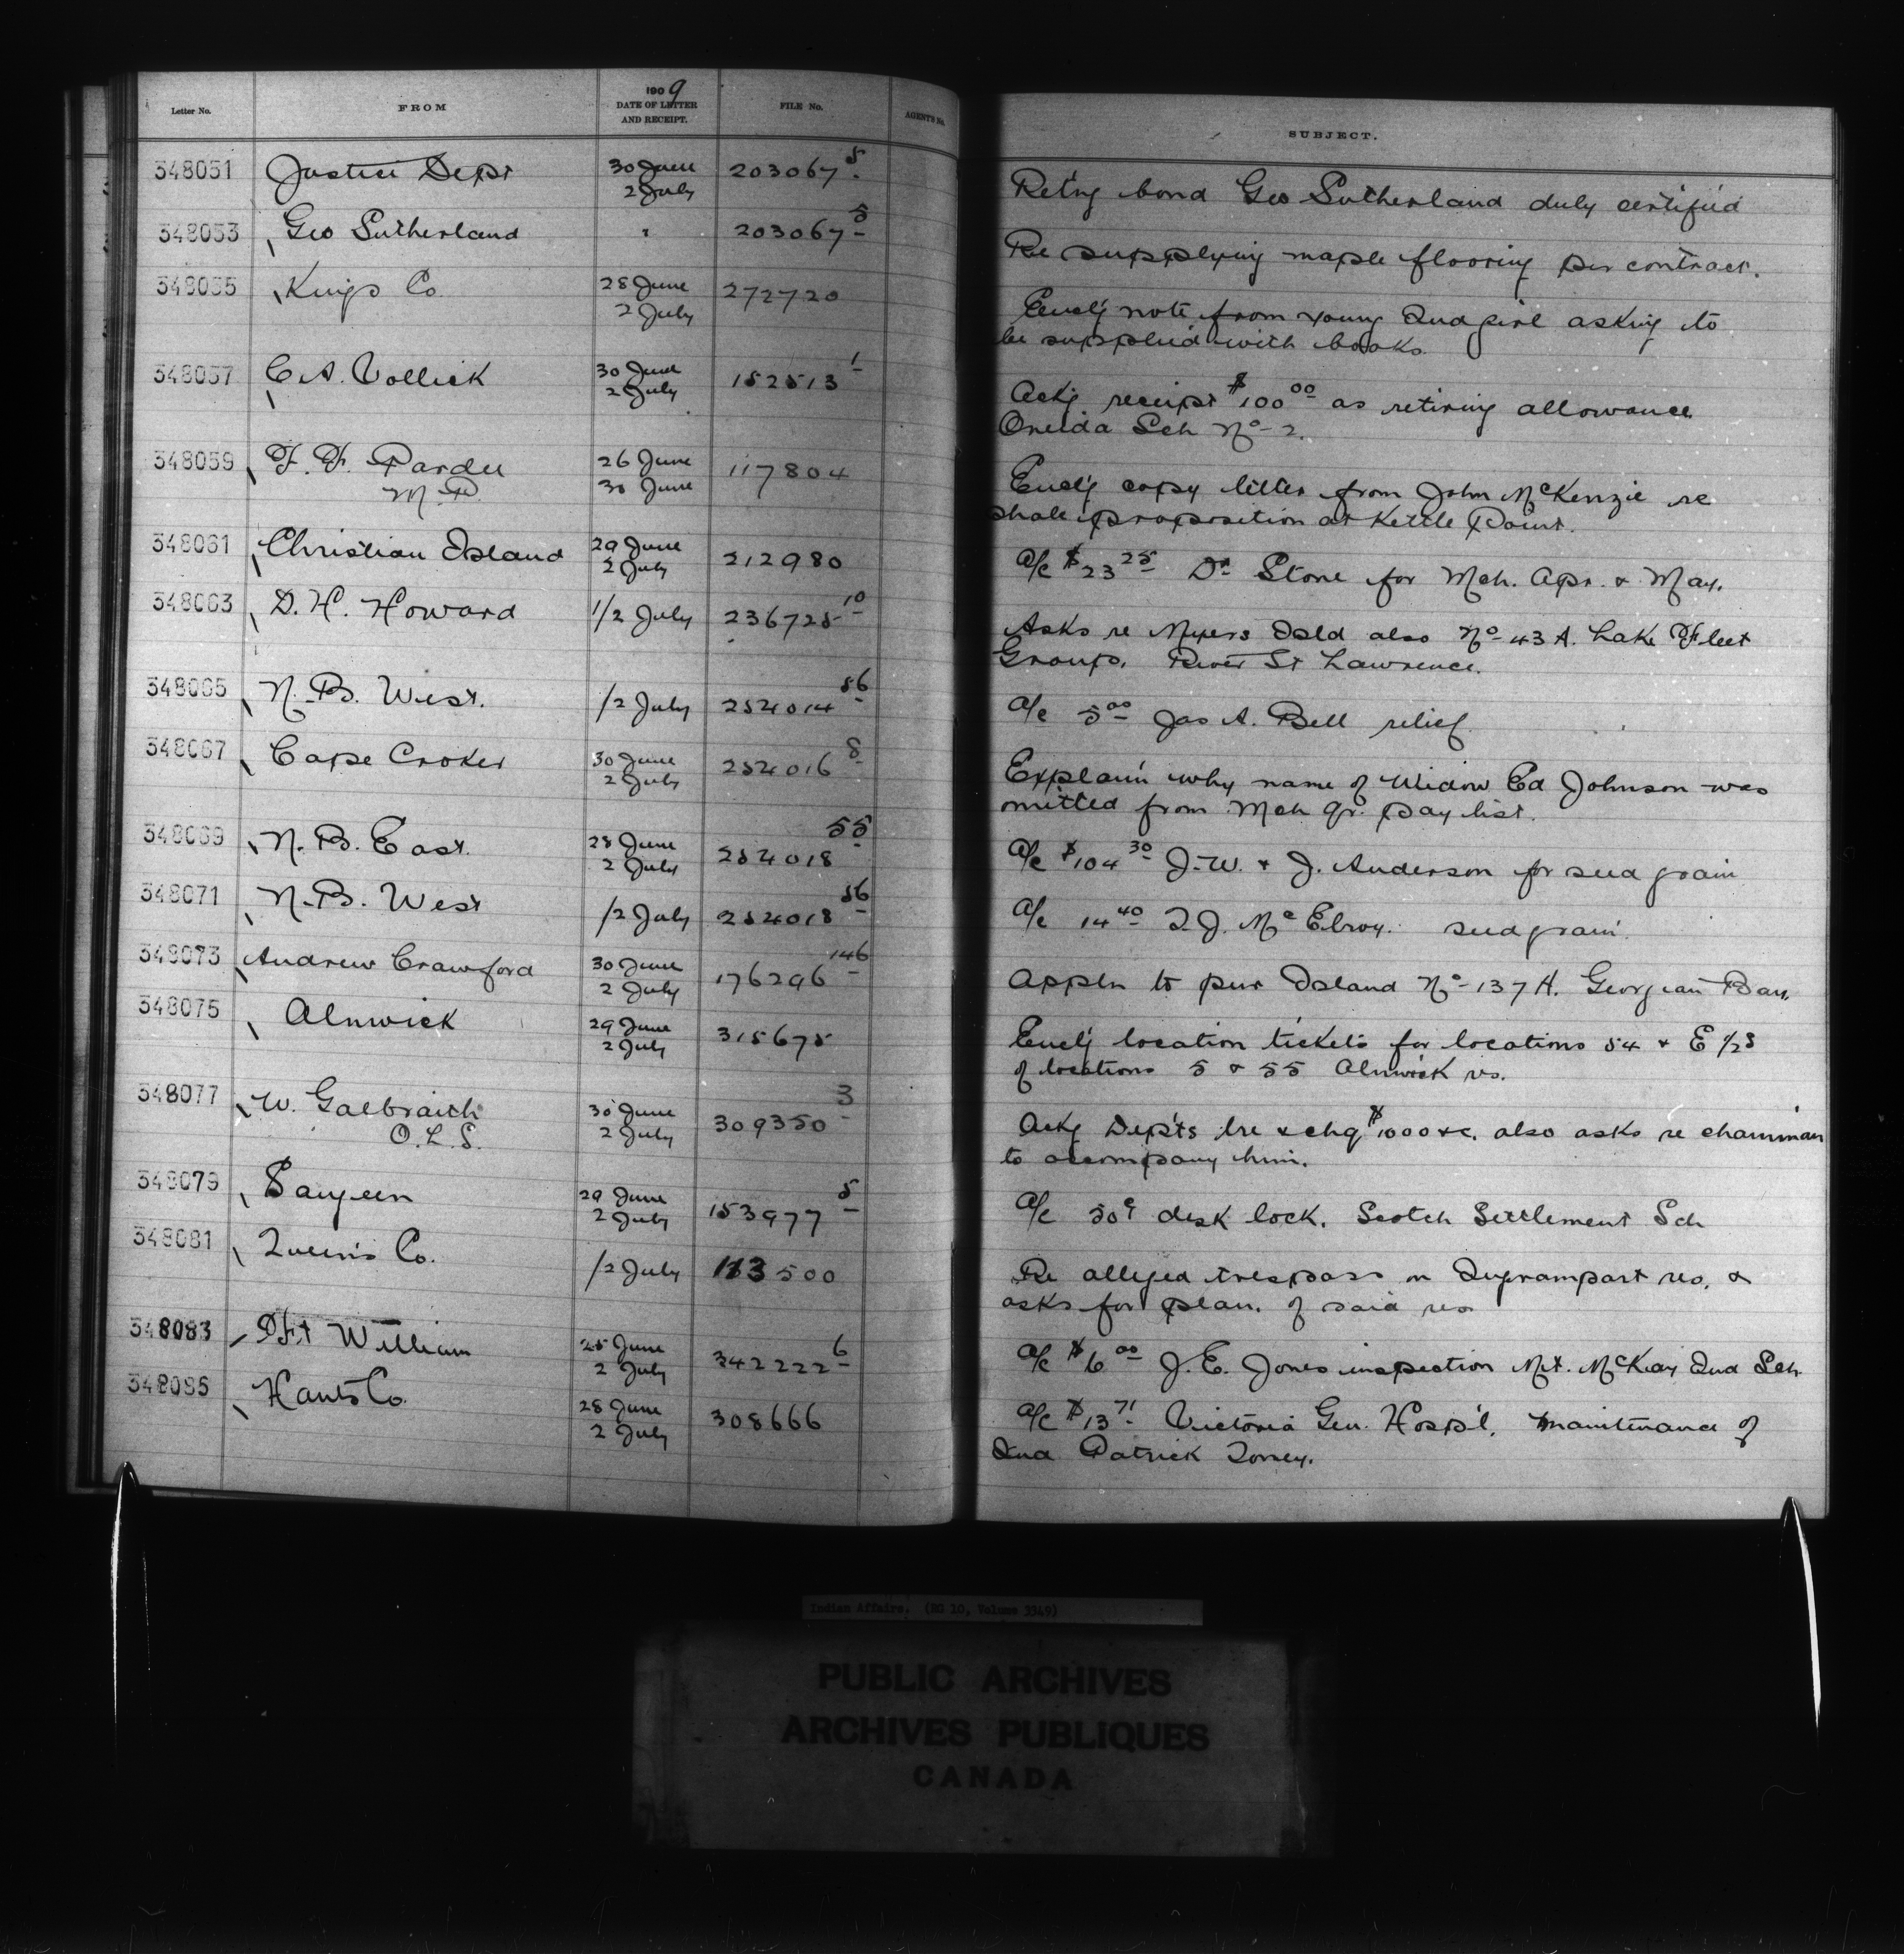 Letter No. FROM 1909 DATE OF LETTER AND RECEIPT. FILE No. AGENT'S No. SUBJECT.
348051 Justice Dept 30 June 2 July 203067 5 Ret'ng bond Geo Sutherland duly certified
348053 Geo Sutherland " 203067 5 Re supplying maple flooring per contract.
348055 Kings Co 28 June 2 July 272720 Encl'g note from young Ind girl asking to
be supplied with books.
348057 C A. Vollick 30 June 2 July 152513 1 Ackg receipt $100 00 as retiring allowance
Oneida Sch No 2.
348059 F. F. Pardee 26 June 117804 Encl'g copy letter from John McKenzie re
M.P. 30 June shale proposition at Kettle Point.
348061 Christian Island 29 June 2 July 212980 A/c $23 25 Dr Stone for Mch. Apr. & May.
348063 D. H. Howard 1/2 July 236725 10 Asks re Myers Isld also No 43 A. Lake Fleet
Group. River St Lawrence.
348065 N. B. West. /2 July 252014 56 A/c 5 00 Jas A. Bell relief
348067 Cape Croker 30 June 2 July 252016 8 Explain'g why name of Widow Ed Johnson was
omitted from Mch qr. pay list.
348069 N. B. East. 28 June 2 July 252018 55 A/c $104 30 J. W. & J. Anderson for seed grain
348071 N. B. West /2 July 252018 56 A/c 14 40 T J. McElroy. seed grain.
348073 Andrew Crawford 30 June 2 July 176296 146 Appln to pur Island No 137 H. Georgian Bay.
348075 Alnwick 29 June 2 July 315675 Encl'g location tickets for locations 54 & E 1/2s
of locations 5 & 55 Alnwick rs.
348077 W. Galbraith 30 June 2 July 309350 3 Ackg Dep'ts lre & chq $1000 &c. also asks re chainman
O.L.S. to accompany him.
348079 Saugeen 29 June 2 July 153977 5 A/c 50¢ desk lock. Scotch Settlement Sch
348081 Queens Co. /2 July 113500 Re alleged trespass on res. &
asks for plan. of said res
348083 Ft William 25 June 2 July 342222 6 A/c $6 00 J. E. Jones inspection Mt. McKay Ind Sch.
348085 Hants Co. 28 June 2 July 308666 A/c $13 71 Victoria Gen. Hosp'l. maintenance of
Ind Patrick Toney.
Indian Affairs. (RG 10, Volume 3349)
PUBLIC ARCHIVES
ARCHIVES PUBLIQUES
CANADA